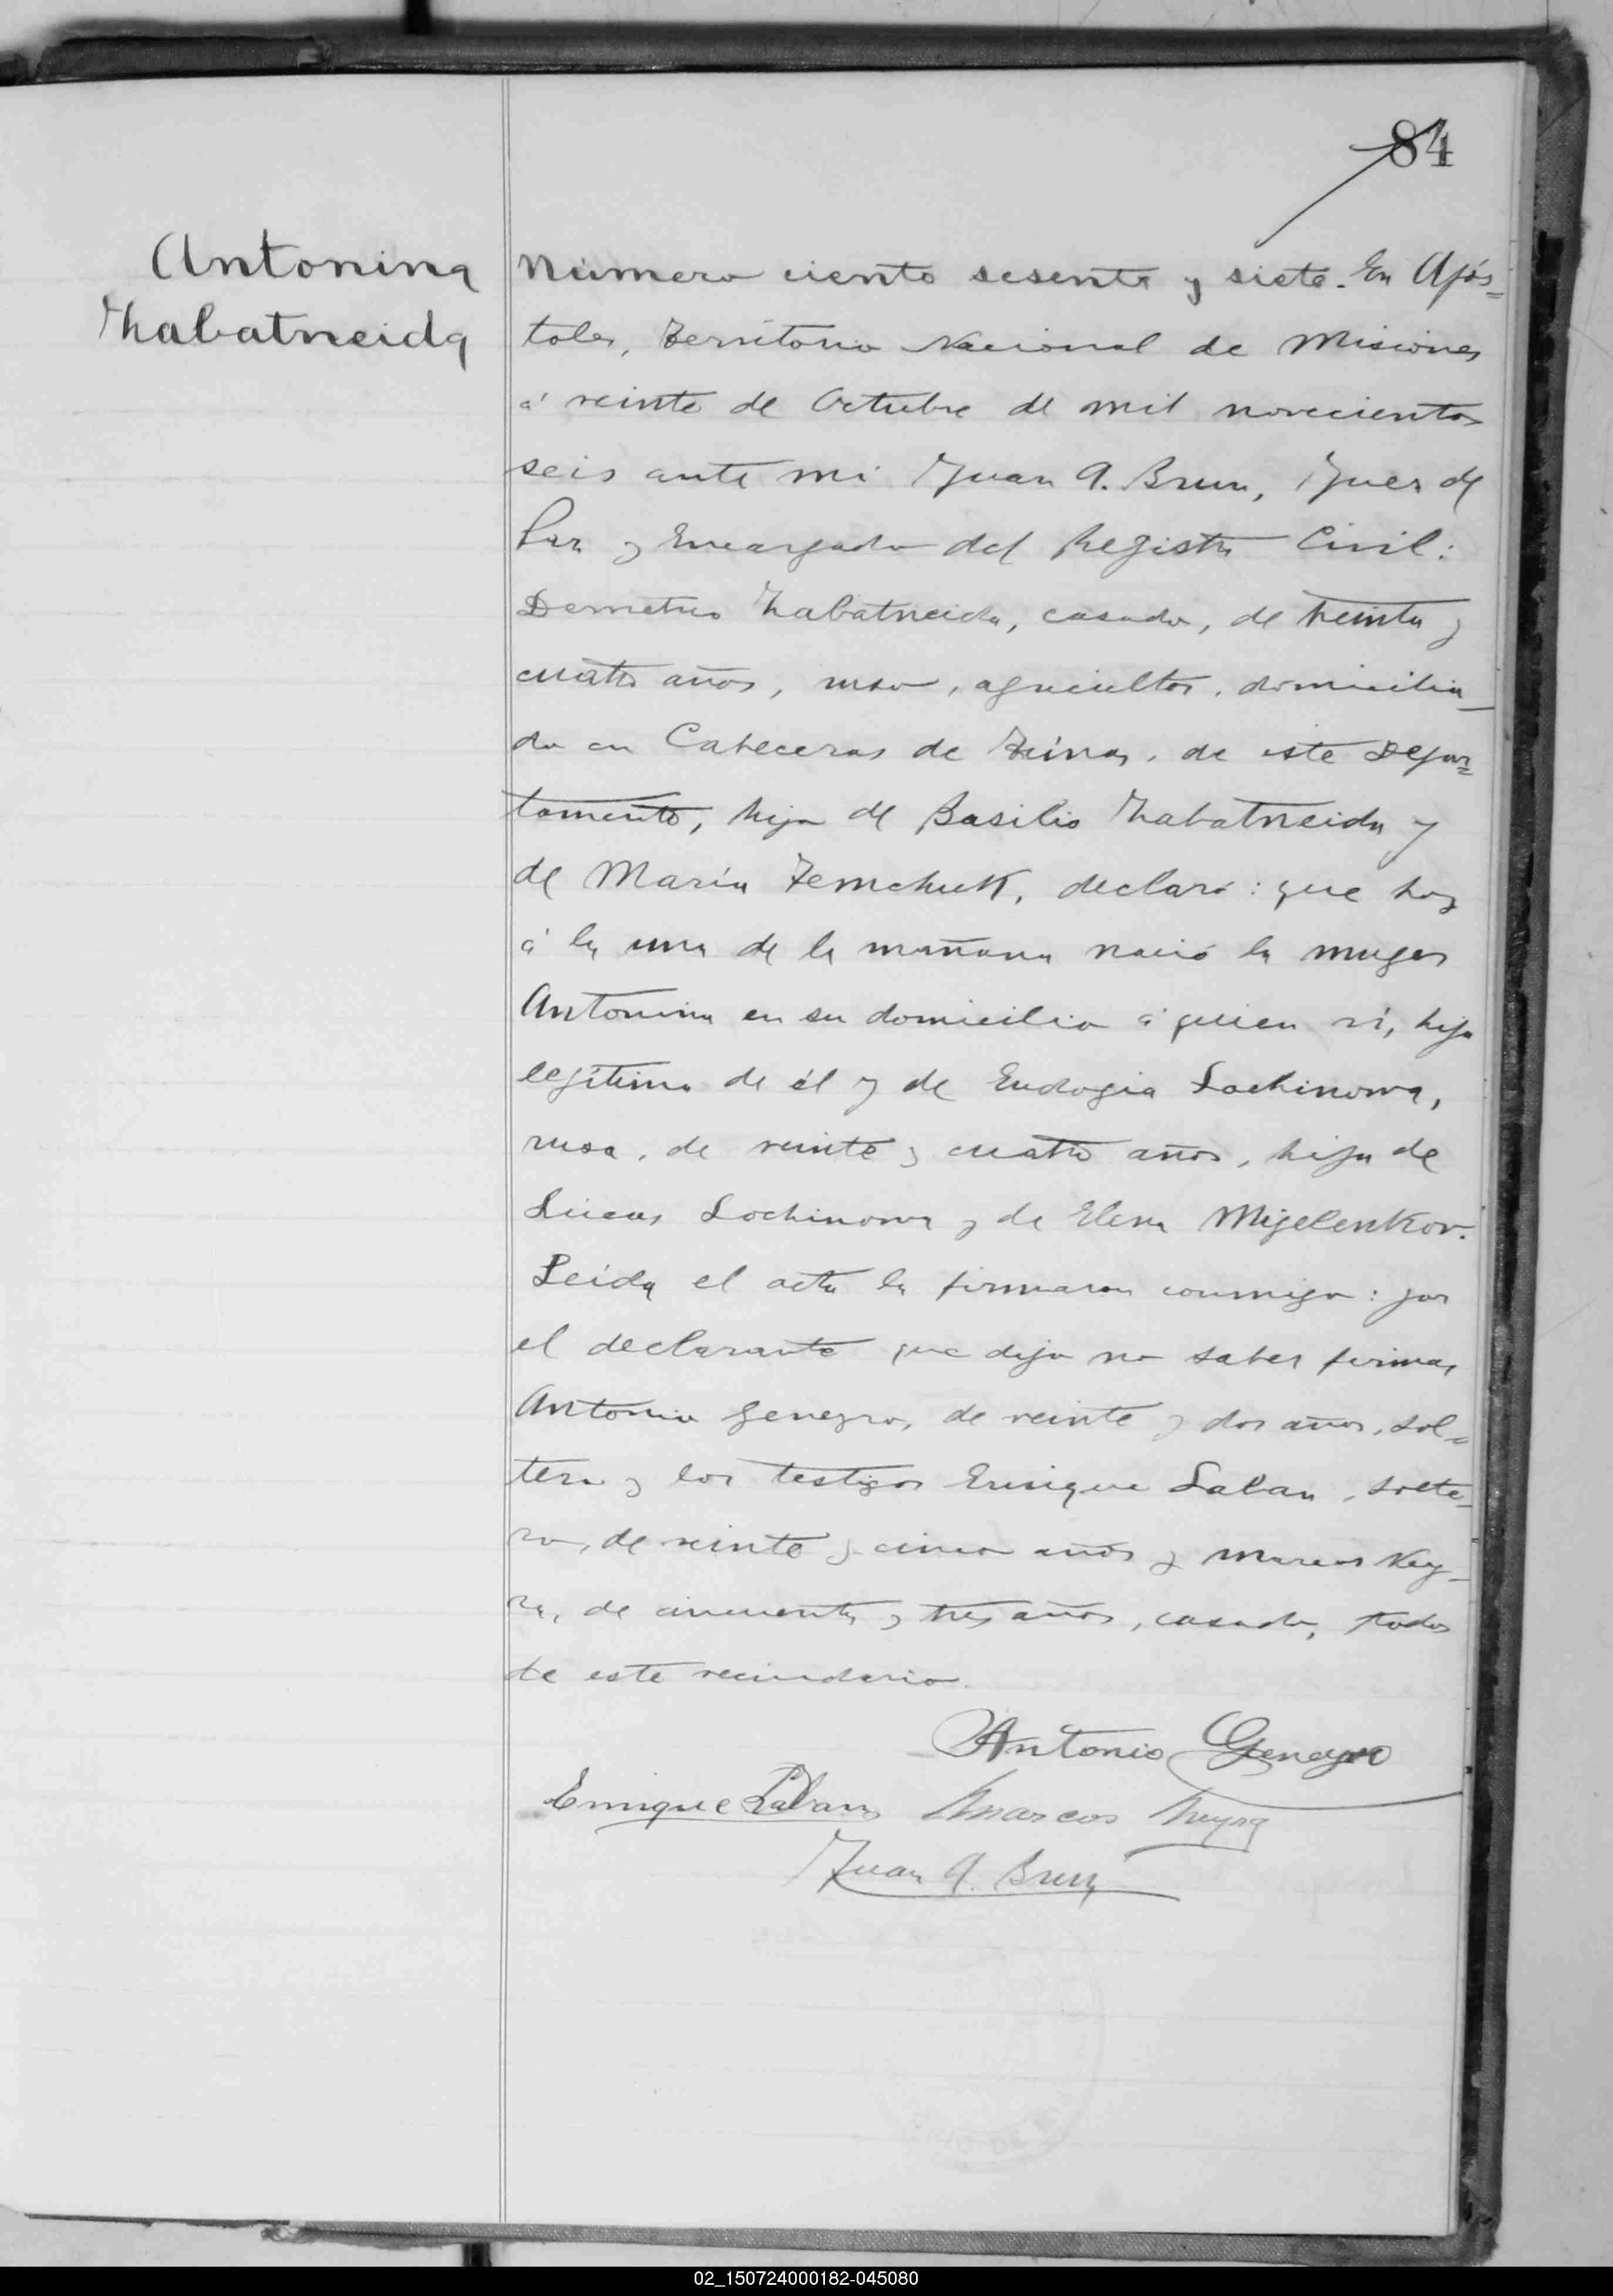 84
Antonina
Zhabatneida
Número ciento sesenta y siete. En Após=
toles, Territorio Nacional de Misiones
á veinte de Octubre de mil novecientos
seis ante mi Juan A. Brun, Juez de
Paz y Encargado del Registro Civil:
Demetrio Zhabatneida, casado, de treinta y
cuatro años, ruso, agricultor, domicilia_
do en Cabeceras de de este Depar=
tamento, hijo de Basilio Zhabatneida y
de María Temchuk, declaró: que hoy
á la una de la mañana nació la muger
Antonina en su domicilio á quien ví, hija
legítima de él y de Eudogia Lochinowa,
rusa, de veinte y cuatro años, hija de
Lucas Lochinowa y de Elena Migelenkov.
Leida el acta la firmaron conmigo: por
el declarante que dijo no saber firmar
Antonio Geneyro, de veinte y dos años, sol=
tero y los testigos Enrique Laban, solte_
ro, de veinte y cinco años y Marcos Ney_
ra, de cincuenta y tres años, casado, todos
de este vecindario.
Antonio Geneyro
Enrique Laban Marcos Neyra
Juan A. Brun
02_150724000182-045080